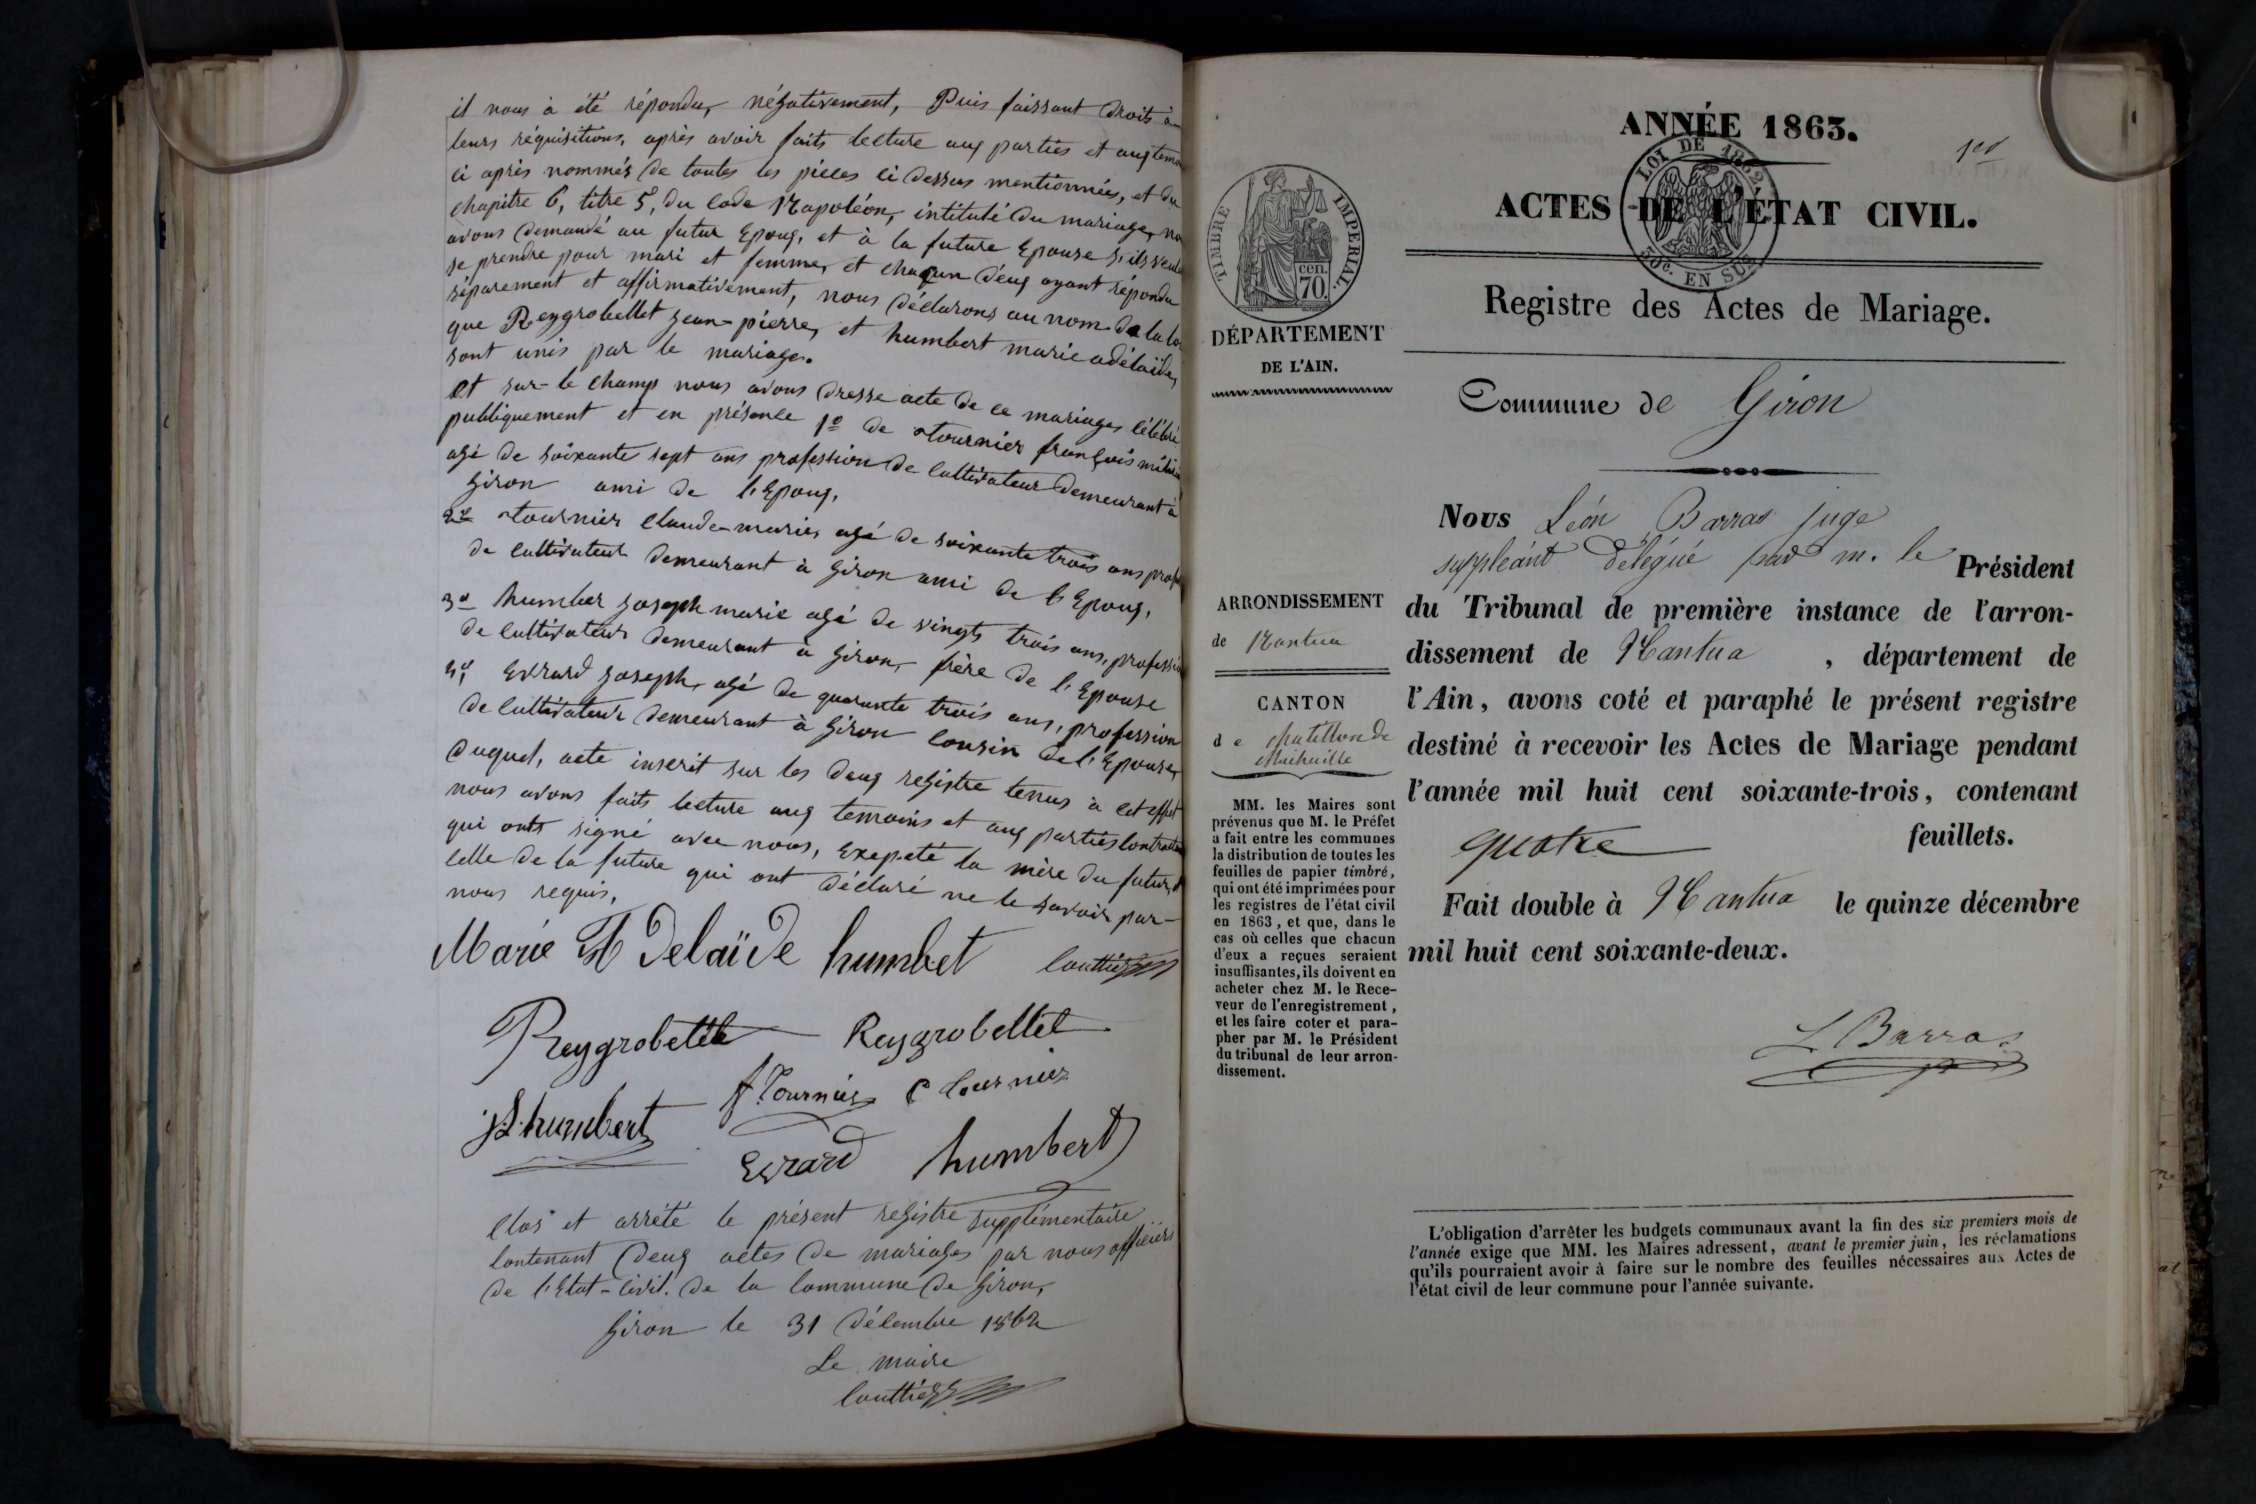 il nous à été répondu, négativement, Puis faissant droits à
leurs réquisitions, après avoir faits lecture aux parties et aux temo
ci après nommés de toutes les pièces ci dessus mentionnées, et du
chapitre 6, titre 5, du code Napoléon, intitulé du mariage, no
avons demandé au futur Epoux, et à la future Epouse s'ils veul
se prendre pour mari et femme, et chaqun d'eux ayant répondu
séparement et affirmativement, nous déclarons au nom de la lo
que Reygrobellet jean-pierre, et humbert marie adélaïde,
sont unis par le mariage.
et sur-le champ nous avons dresse acte de ce mariages célébré
publiquement et en présence 1º de tournier françois
agé de soixante sept ans profession de cultivateur demeurant à
Giron ami de l'Epoux,
2º tournier claude-marie agé de soixante trois ans profes
de cultivateur demeurant à Giron ami de l'Epoux,
3º humber joseph marie agé de vingts trois ans, professi
de cultivateur demeurant à Giron, frère de l'Epouse
4º Evrard joseph, agé de quarante trois ans, profession
de cultivateur demeurant à Giron cousin de l'Epouse,
duquel, acte inscrit sur les deux registre tenus à cet effet
nous avons faits lecture aux temoins et aux parties contracta
qui onts signé avec nous, Exepeté la mère du futur, et
celle de la future qui ont déclaré ne le savoir par-
nous requis,
Marie A Delaïde humbet
Reygrobelle Reygrobellet
f. Tournier C tournier
humbert
Evrard humbert
clos et arrété le présent registre supplémentaire
contenant deux actes de mariages par nous officiers
de l'Etat-civil. de la commune de Giron,
Giron le 31 décembre 1862
Le maire
ANNÉE 1863.
1er
LOI DE 1862
EN SUS
ACTES DE L'ÉTAT CIVIL.
Registre des Actes de Mariage.
TIMBRE IMPERIAL.
cen.
70.
DÉPARTEMENT
DE L'AIN.
Commune de Giron
Nous Léon Barras juge
suppléant délégué par m. le Président
du Tribunal de première instance de l'arron-
dissement de Nantua , département de
l'Ain, avons coté et paraphé le présent registre
destiné à recevoir les Actes de Mariage pendant
l'année mil huit cent soixante-trois, contenant
quatre feuillets.
Fait double à Nantua le quinze décembre
mil huit cent soixante-deux.
L Barras
ARRONDISSEMENT
de Nantua
CANTON
de chatillon de
Michaille
MM. les Maires sont
prévenus que M. le Préfet
a fait entre les communes
la distribution de toutes les
feuilles de papier timbré,
qui ont été imprimées pour
les registres de l'état civil
en 1863, et que, dans le
cas où celles que chacun
d'eux a reçues seraient
insuffisantes, ils doivent en
acheter chez M. le Rece-
veur de l'enregistrement,
et les faire coter et para-
pher par M. le Président
du tribunal de leur arron-
dissement.
L'obligation d'arrêter les budgets communaux avant la fin des six premiers mois de
l'année exige que MM. les Maires adressent, avant le premier juin, les réclamations
qu'ils pourraient avoir à faire sur le nombre des feuilles nécessaires aux Actes de
l'état civil de leur commune pour l'année suivante.